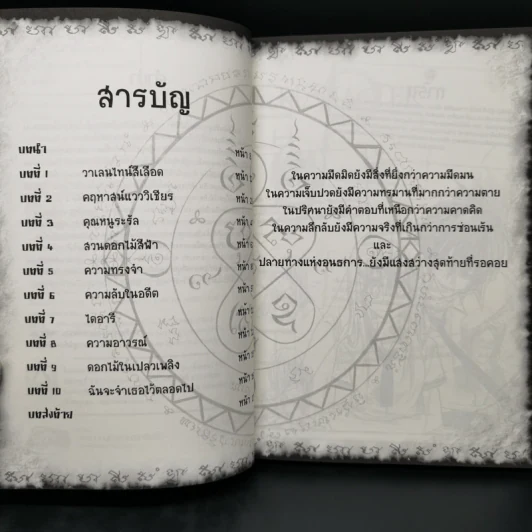 สารบัญ
บทนำ หน้า
บทที่ 1 วาเลนไทน์สีเลือด หน้า
บทที่ 2 คฤหาสน์แววิเชียร หน้า
บทที่ 3 คุณหนูระรัล หน้า
บทที่ 4 สวนดอกไม้สีฟ้า หน้า
บทที่ 5 ความทรงจำ หน้า
บทที่ 6 ความลับในอดีต หน้า
บทที่ 7 ไดอารี่ หน้า
บทที่ 8 ความอาวรณ์ หน้า
บทที่ 9 ดอกไม้ในเปลวเพลิง หน้า
บทที่ 10 ฉันจะจำเธอไว้ตลอดไป หน้า
บทส่งท้าย
ในความมืดมิดยังมีสิ่งที่ยิ่งกว่าความมืดมน
ในความเจ็บปวดยังมีความทรมานที่มากกว่าความตาย
ในปริศนายังมีคำตอบที่เหนือกว่าความคาดคิด
ในความลึกลับยังมีความจริงที่เกินกว่าการซ่อนเร้น
และ
ปลายทางแห่งอนธการ...ยังมีแสงสว่างสุดท้ายที่รอคอย